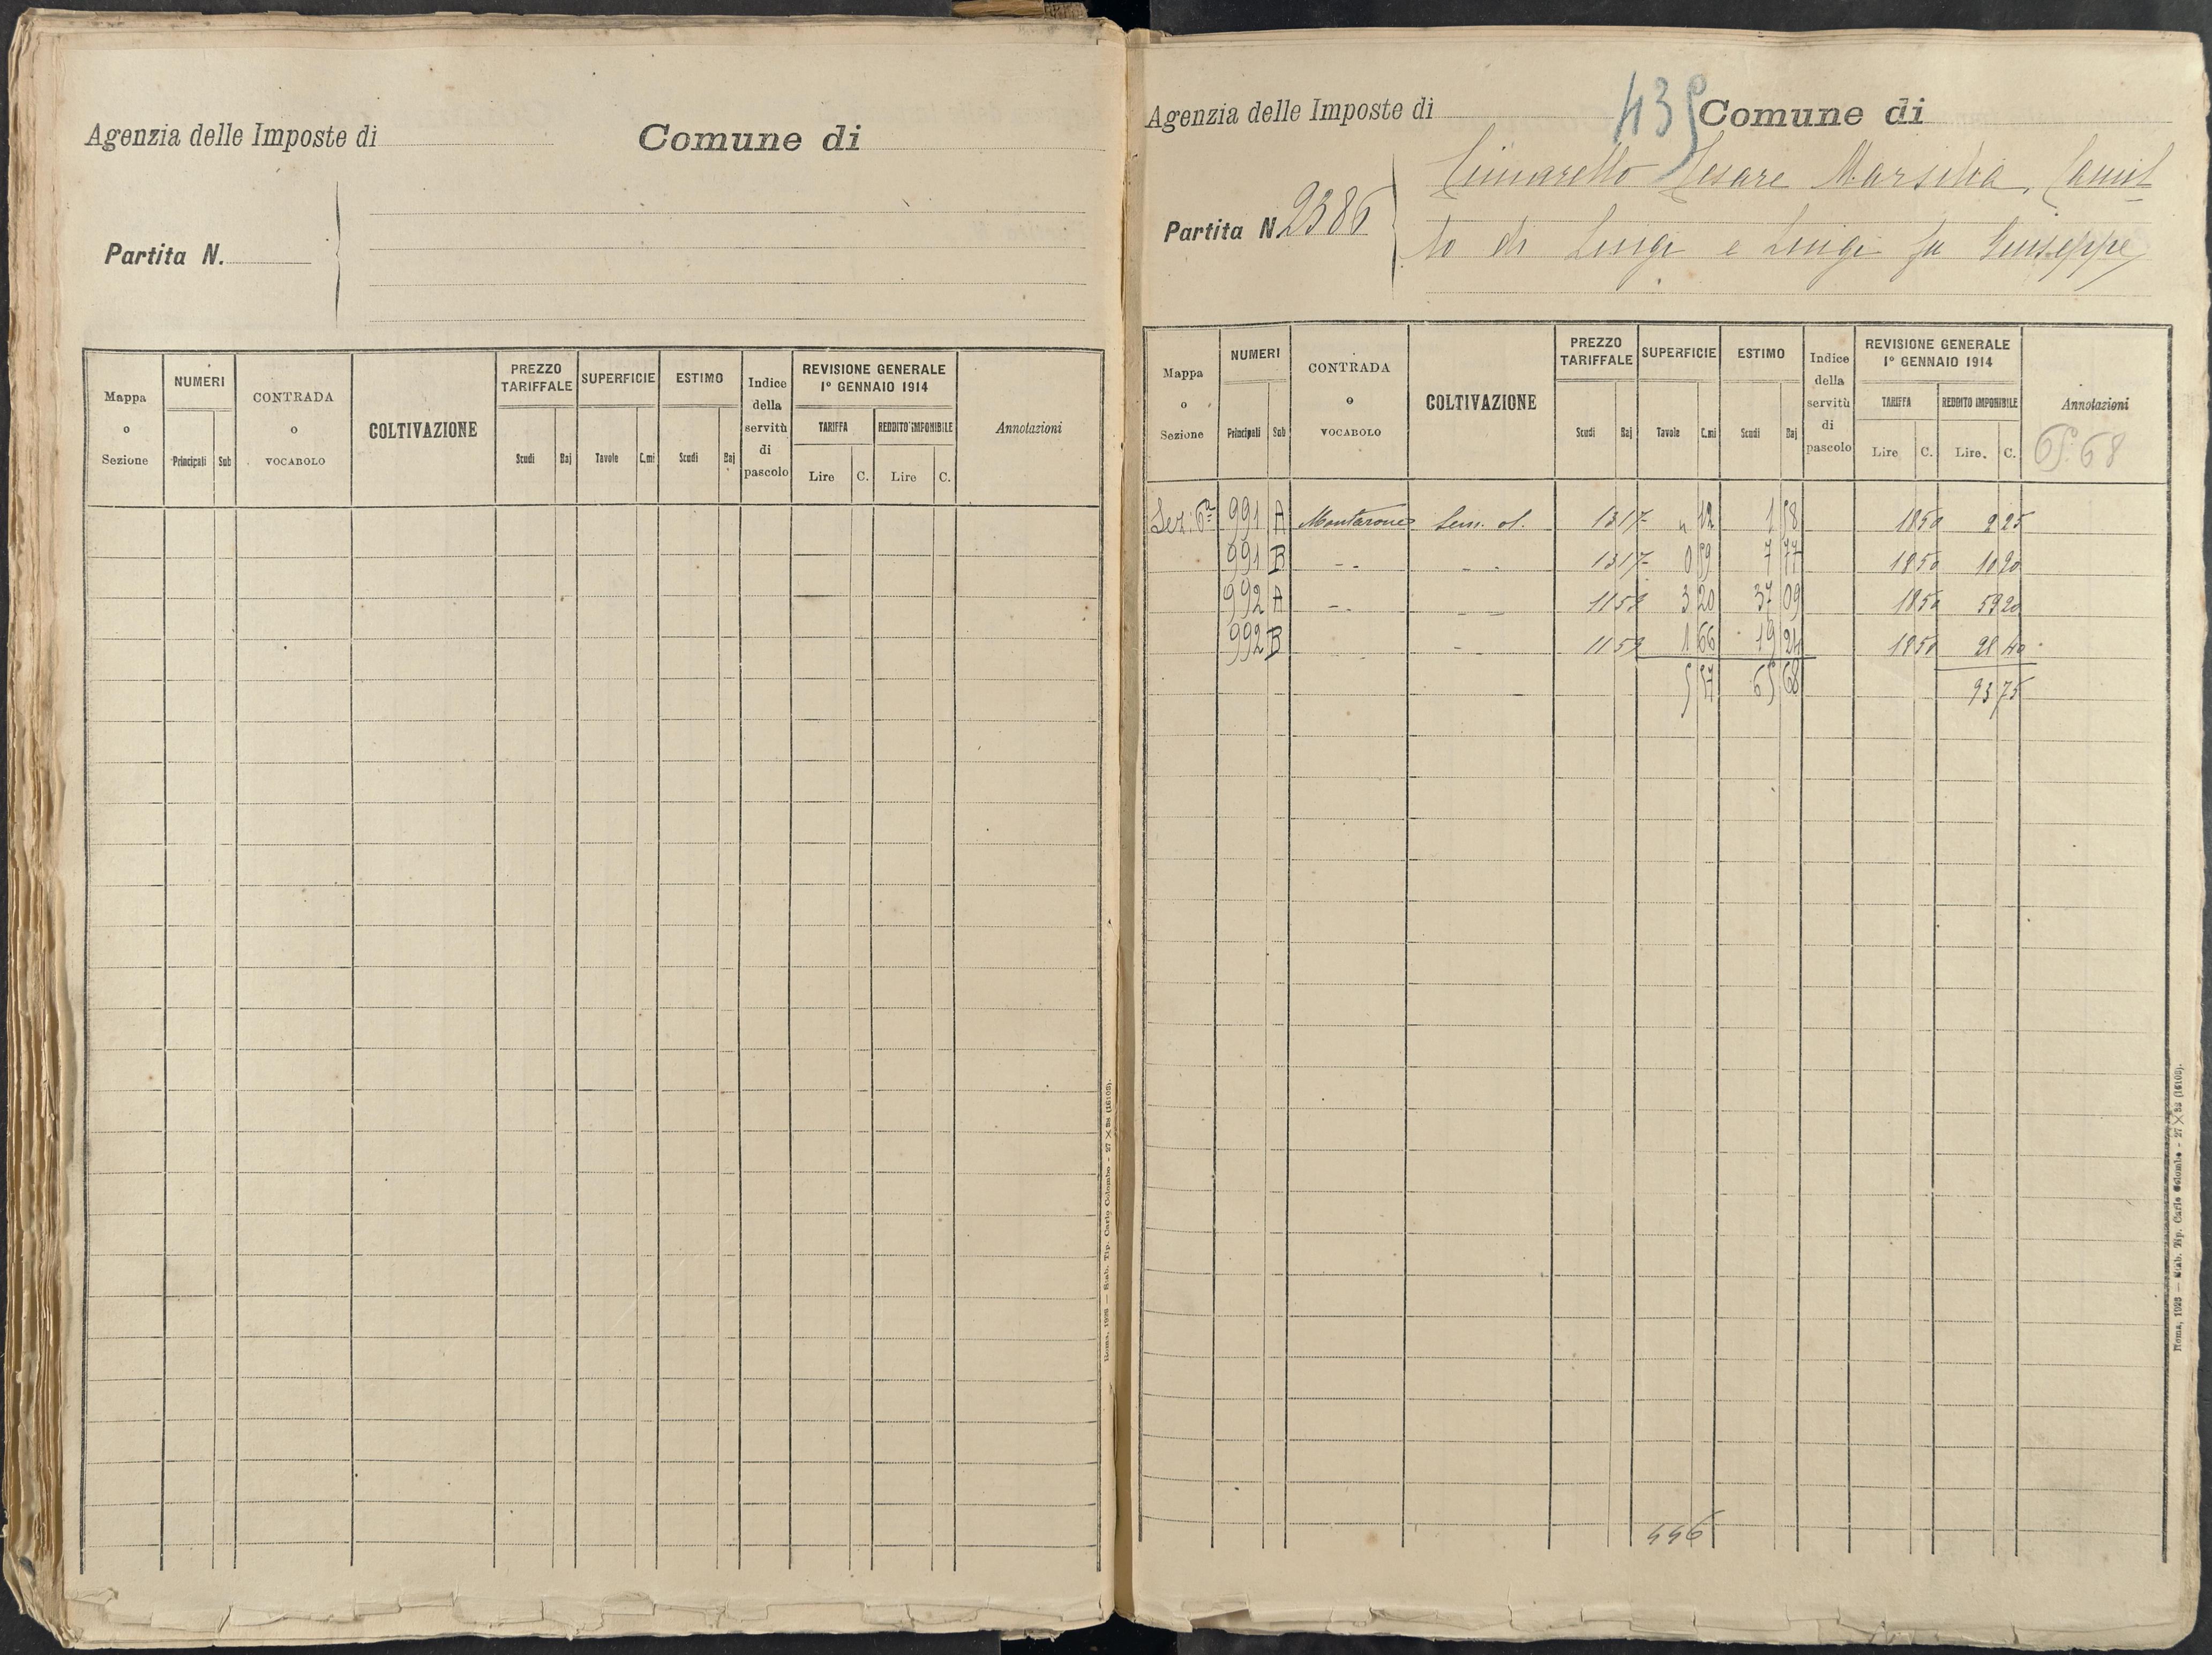 Agenzia delle Imposte di
Comune di
Partita N.
Mappa o Sezione
NUMERI
Principali
Sub
CONTRADA o VOCABOLO
COLTIVAZIONE
PREZZO TARIFFALE
Scudi
Baj
SUPERFICIE
Tavole
C.mi
ESTIMO
Scudi
Baj
Indice della servitù di pascolo
REVISIONE GENERALE 1º GENNAIO 1914
TARIFFA
Lire
C.
REDDITO IMPONIBILE
Lire
C.
Annotazioni
Roma, 1925 — Stab. Tip. Carlo Colombo - 27 × 38 (16108).
Agenzia delle Imposte di
435
Comune di
Partita N. 2386
Cimarello Cesare Marsilia, Camil
lo di Luigi e Luigi fu Giuseppe
Mappa o Sezione
NUMERI
Principali
Sub
CONTRADA o VOCABOLO
COLTIVAZIONE
PREZZO TARIFFALE
Scudi
Baj
SUPERFICIE
Tavole
C.mi
ESTIMO
Scudi
Baj
Indice della servitù di pascolo
REVISIONE GENERALE 1º GENNAIO 1914
TARIFFA
Lire
C.
REDDITO IMPONIBILE
Lire.
C.
Annotazioni
65.68
Sez: 6ª 991 A Montarone Sem. ol. 13 17 " 12 1 58 18 50 2 25
991 B - - - - 13 17 0 59 7 77 18 50 10 20
992 A - - - - 11 59 3 20 37 09 18 50 59 20
992 B - - - - 11 59 1 66 19 24 18 50 28 40
5 57 65 68 93 75
446
Roma, 1925 — Stab. Tip. Carlo Colombo - 27 × 38 (16108).